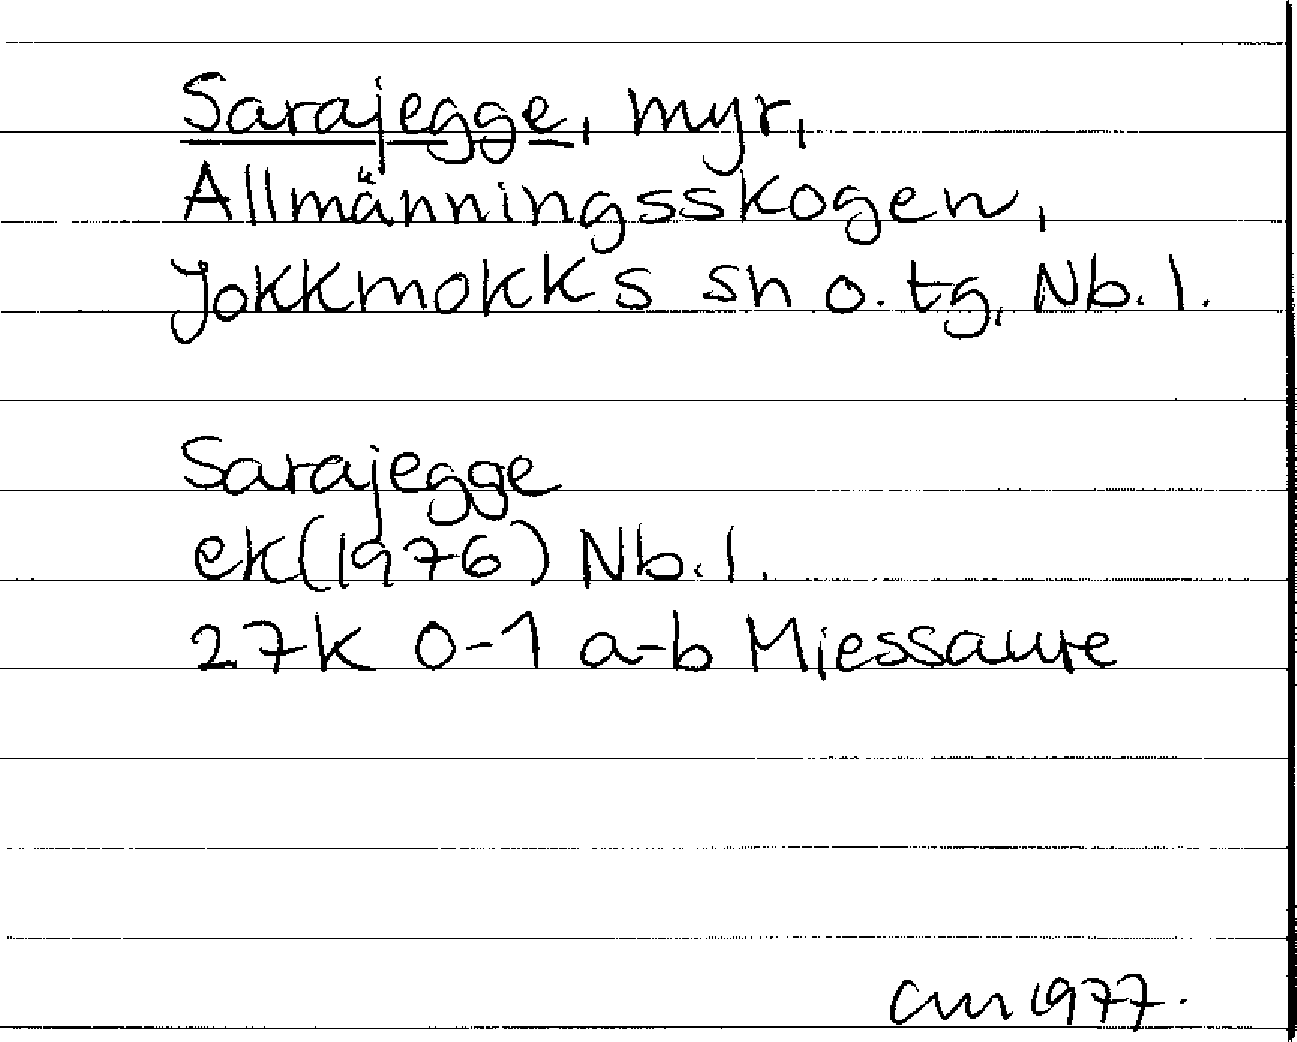 Sarajegge, myr,
Allmänningsskogen,
Jokkmokks sn o. tg, Nb. l.
Sarajegge
ek(1976) Nb. l.
27K 0-1 a-b Miessaure
cm 1977.